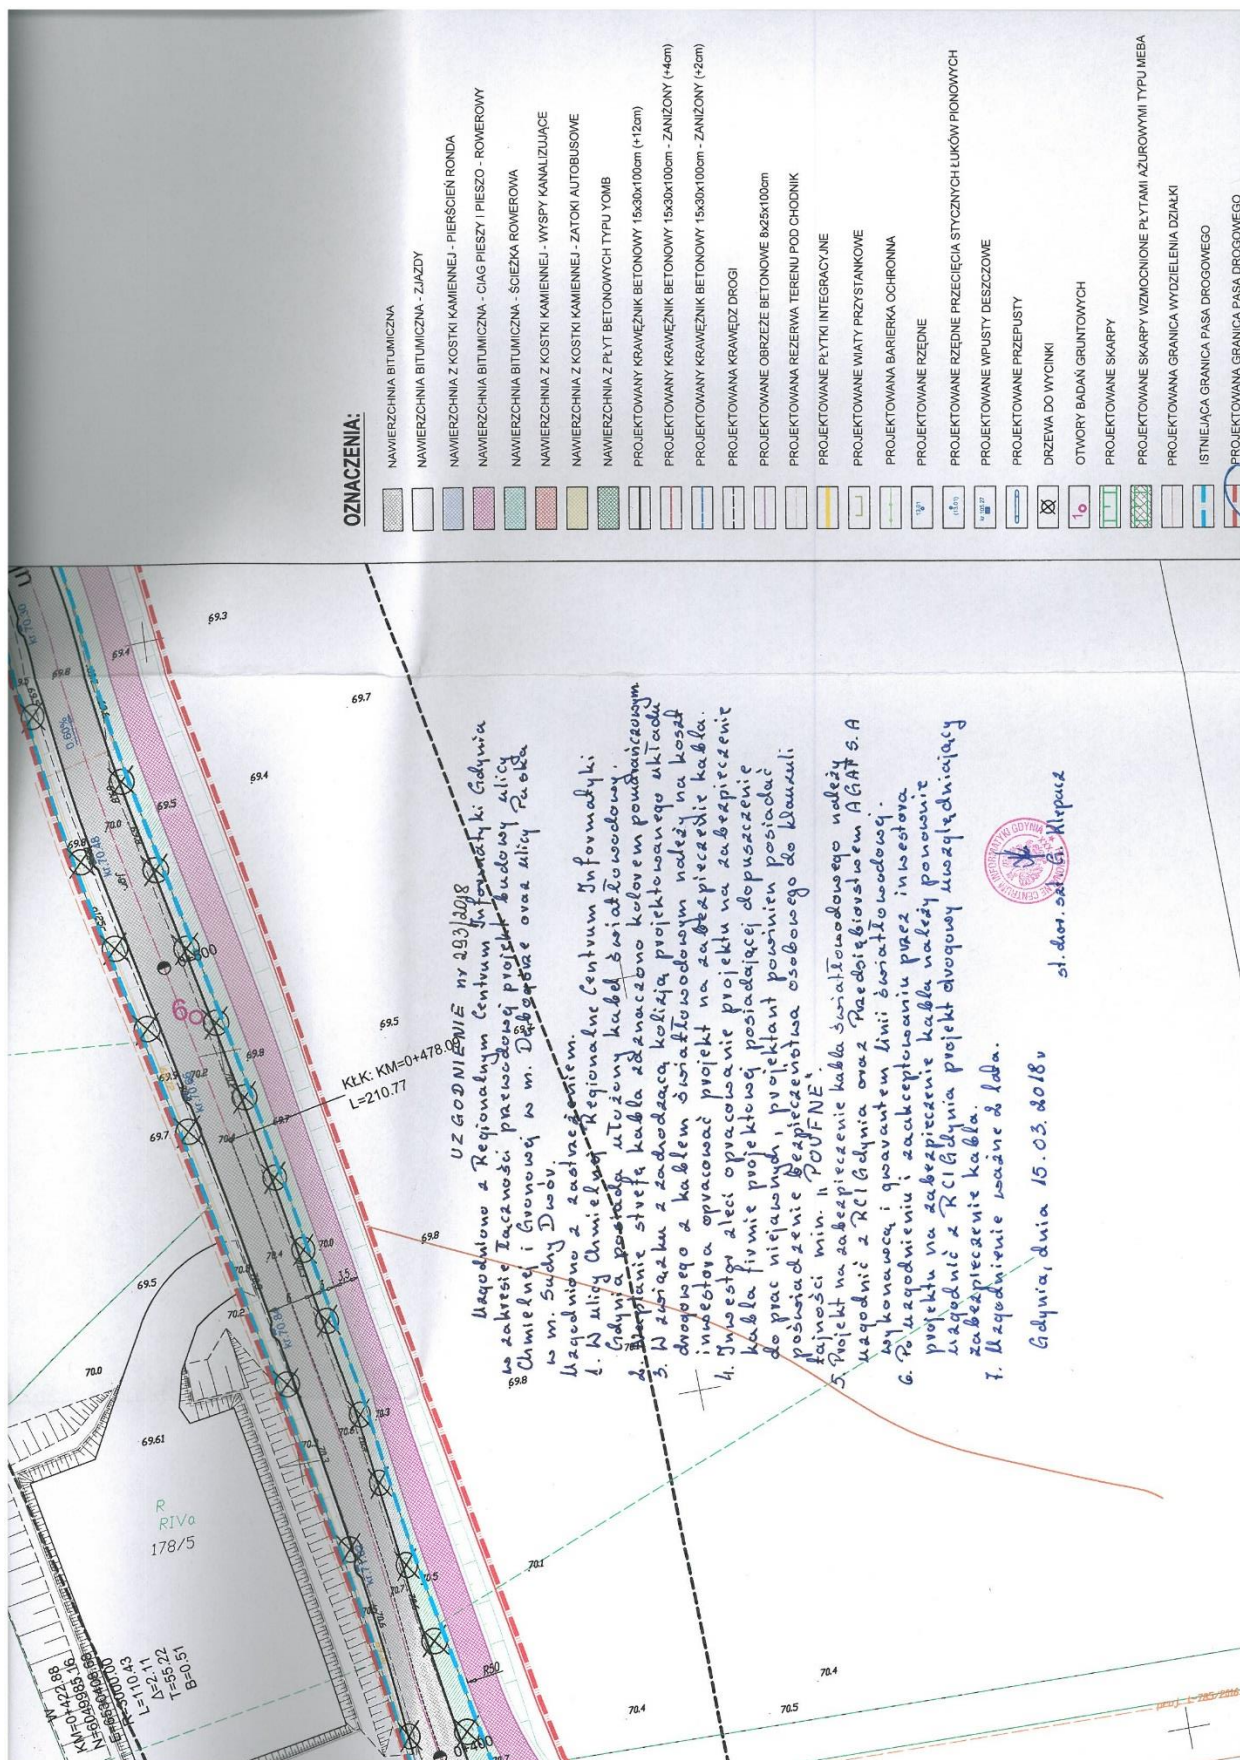 OZNACZENIA:
NAWIERZCHNIA BITUMICZNA
NAWIERZCHNIA BITUMICZNA - ZJAZDY
NAWIERZCHNIA Z KOSTKI KAMIENNEJ - PIERŚCIEŃ RONDA
NAWIERZCHNIA BITUMICZNA - CIĄG PIESZY I PIESZO - ROWEROWY
NAWIERZCHNIA BITUMICZNA - ŚCIEŻKA ROWEROWA
NAWIERZCHNIA Z KOSTKI KAMIENNEJ - WYSPY KANALIZUJĄCE
NAWIERZCHNIA Z KOSTKI KAMIENNEJ - ZATOKI AUTOBUSOWE
NAWIERZCHNIA Z PŁYT BETONOWYCH TYPU YOMB
PROJEKTOWANY KRAWĘŻNIK BETONOWY 15x30x100cm (+12cm)
PROJEKTOWANY KRAWĘŻNIK BETONOWY 15x30x100cm - ZANIŻONY (+4cm)
PROJEKTOWANY KRAWĘŻNIK BETONOWY 15x30x100cm - ZANIŻONY (+2cm)
PROJEKTOWANA KRAWĘDŹ DROGI
PROJEKTOWANE OBRZEŻE BETONOWE 8x25x100cm
PROJEKTOWANA REZERWA TERENU POD CHODNIK
PROJEKTOWANE PŁYTKI INTEGRACYJNE
PROJEKTOWANE WIATY PRZYSTANKOWE
PROJEKTOWANA BARIERKA OCHRONNA
PROJEKTOWANE RZĘDNE
PROJEKTOWANE RZĘDNE PRZECIĘCIA STYCZNYCH ŁUKÓW PIONOWYCH
PROJEKTOWANE WPUSTY DESZCZOWE
PROJEKTOWANE PRZEPUSTY
DRZEWA DO WYCINKI
OTWORY BADAŃ GRUNTOWYCH
PROJEKTOWANE SKARPY
PROJEKTOWANE SKARPY WZMOCNIONE PŁYTAMI AŻUROWYMI TYPU MEBA
PROJEKTOWANA GRANICA WYDZIELENIA DZIAŁKI
ISTNIEJĄCA GRANICA PASA DROGOWEGO
PROJEKTOWANA GRANICA PASA DROGOWEGO
UZGODNIENIE nr 223/2018
Uzgodniono z Regionalnym Centrum Informatyki Gdynia
w zakresie łączności przewodowej projekt budowy ulicy
Chmielnej i Gronowej w m. Dębogórze oraz ulicy Pucka
w m. Suchy Dwór.
Uzgodniono z zastrzeżeniem.
1. W ulicy Chmielnej Regionalne Centrum Informatyki
Gdynia posiada ułożony kabel światłowodowy.
2. strefę kabla zaznaczono kolorem pomarańczowym
3. W związku z zachodzącą kolizją projektowanego układu
drogowego z kablem światłowodowym należy na koszt
inwestora opracować projekt na zabezpieczenie kabla.
4. Inwestor zleci opracowanie projektu na zabezpieczenie
kabla firmie projektowej posiadającej dopuszczenie
do prac niejawnych, projektant powinien posiadać
poświadczenie bezpieczeństwa osobowego do klauzuli
tajności min. "POUFNE".
5. Projekt na zabezpieczenie kabla światłowodowego należy
uzgodnić z RCI Gdynia oraz Przedsiębiorstwem AGAT S.A
wykonawcą i gwarantem linii światłowodowej.
6. Po uzgodnieniu i zaakceptowaniu przez inwestora
projektu na zabezpieczenie kabla należy ponownie
uzgodnić z RCI Gdynia projekt drogowy uwzględniający
zabezpieczenie kabla.
7. Uzgodnienie ważne 2 lata.
Gdynia, dnia 15.03.2018r
st. chor. szt. G. Klepacz
KŁK: KM=0+478.0
L=210.77
KM=0+422.88
N=6049585.16
R=3000.00
L=110.43
Δ=2.11
T=55.22
B=0.51
R
RIVa
178/5
69.61
R50
0+400
6
0.60%
69.3
69.7
69.4
69.5
69.8
70.0
70.1
70.4
70.5